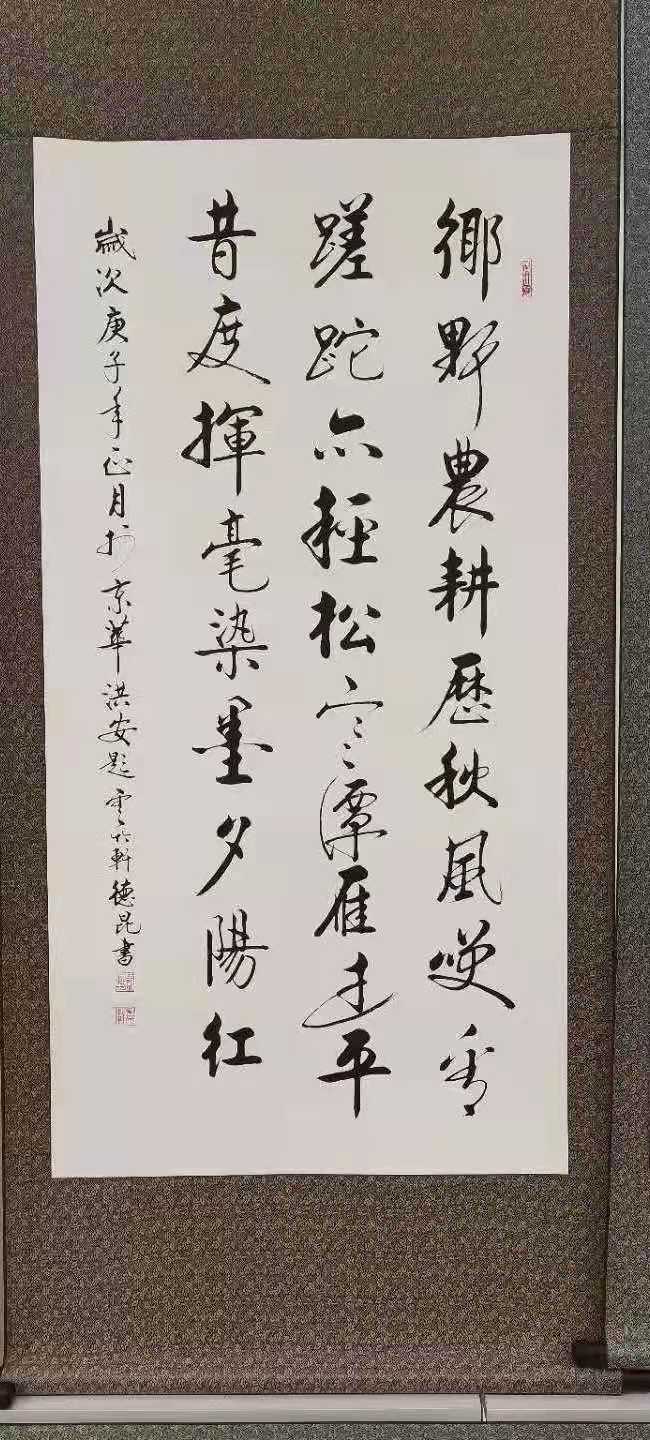 鄉野農耕歷秋風咲看
蹉跎亦輕松寒潭雁平
昔度揮毫染墨夕陽紅
歲次庚子年正月於京華洪安題雲竹軒德昆書